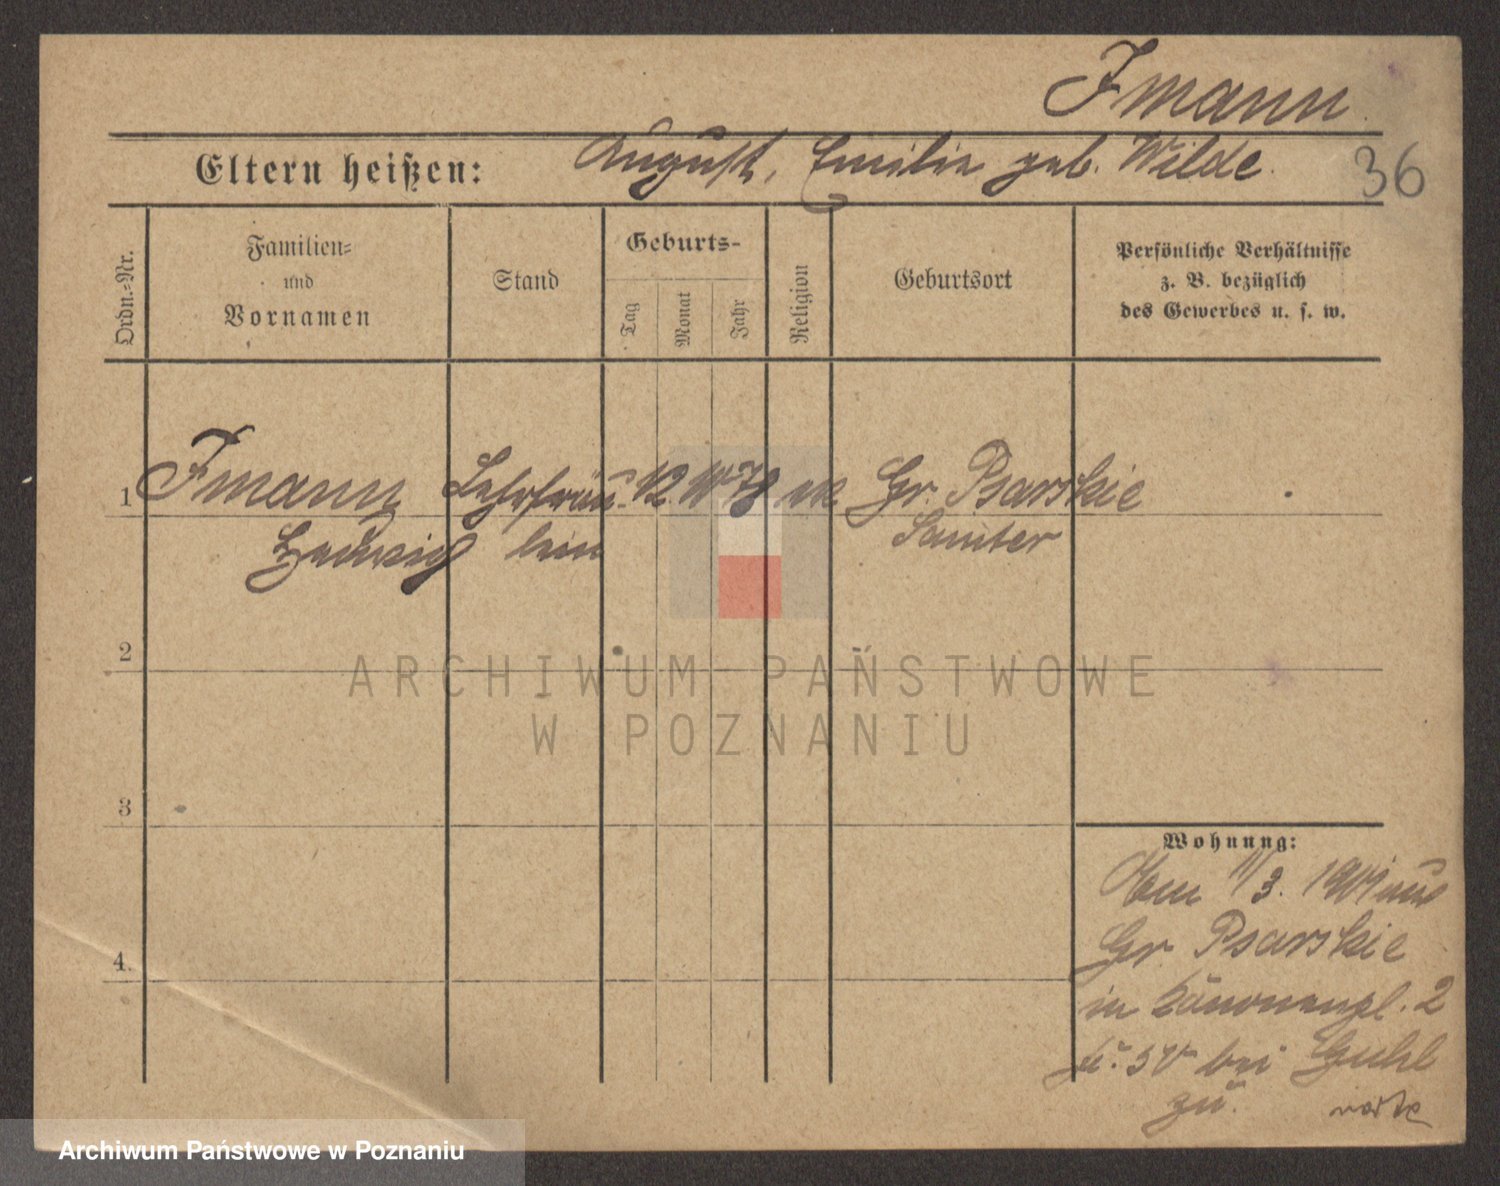 Imann
Eltern heißen: August, Emilie geb. Wilde
36
Ordn.=Nr.
Familien=
und
Vornamen
Stand
Geburts-
Tag
Monat
Jahr
Religion
Geburtsort
Persönliche Verhältnisse
z. B. bezüglich
des Gewerbes u. s. w.
1 Imann Lehrfräu- 12 78 Gr. Psarskie
Hedwig lein Samter
2
3
4.
Wohnung:
3. 1901 aus
Gr. Psarskie
in Kanonenpl. 2
bei Guhl
zu.
ARCHIWUM PAŃSTWOWE
W POZNANIU
Archiwum Państwowe w Poznaniu